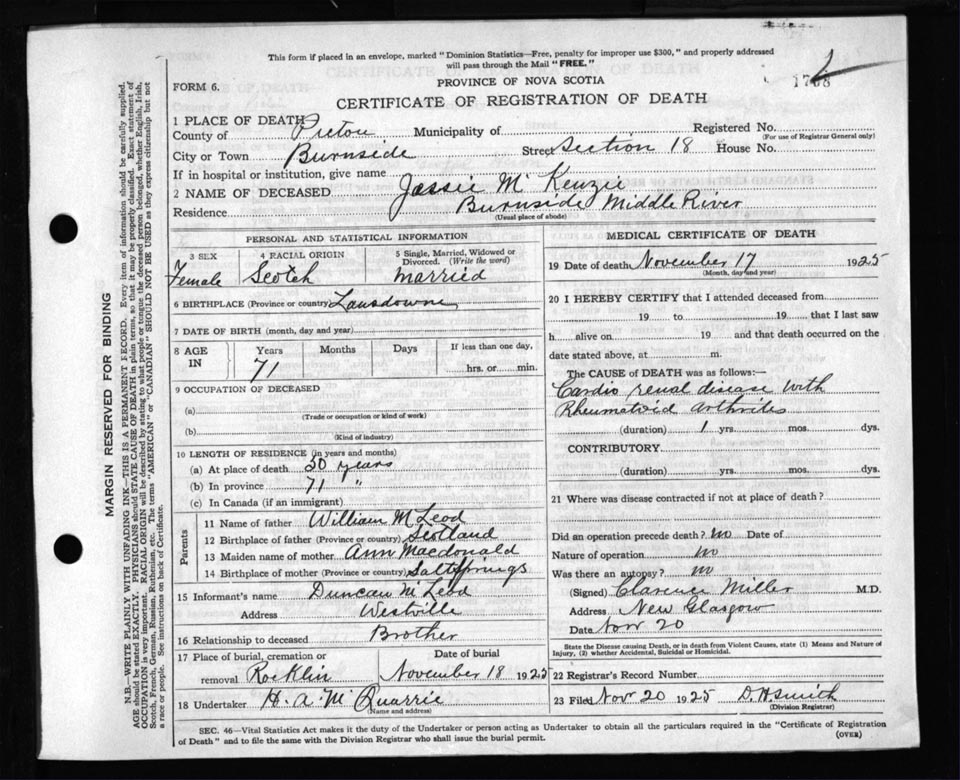 This form if placed in an envelope, marked "Dominion Statistics—Free, penalty for improper use $300," and properly addressed
will pass through the Mail "FREE."
PROVINCE OF NOVA SCOTIA
FORM 6.
CERTIFICATE OF REGISTRATION OF DEATH
1 PLACE OF DEATH
County of Pictou Municipality of Registered No.
(For use of Registrar General only)
City or Town Burnside Street Section 18 House No.
If in hospital or institution, give name
2 NAME OF DECEASED Jessie McKenzie
Residence Burnside Middle River
(Usual place of abode)
PERSONAL AND STATISTICAL INFORMATION
3 SEX Female
4 RACIAL ORIGIN Scotch
5 Single, Married, Widowed or
Divorced. (Write the word)
married
6 BIRTHPLACE (Province or country) Lansdowne
7 DATE OF BIRTH (month, day and year)
8 AGE IN
Years 71
Months
Days
If less than one day,
hrs. or min.
9 OCCUPATION OF DECEASED
(a)
(Trade or occupation or kind of work)
(b)
(Kind of industry)
10 LENGTH OF RESIDENCE (in years and months)
(a) At place of death 50 years
(b) In province 71 "
(c) In Canada (if an immigrant)
Parents
11 Name of father William McLeod
12 Birthplace of father (Province or country) Scotland
13 Maiden name of mother Ann Macdonald
14 Birthplace of mother (Province or country) Saltsprings
15 Informant's name Duncan McLeod
Address Westville
16 Relationship to deceased Brother
17 Place of burial, cremation or
removal Rocklin
Date of burial
November 18 1925
18 Undertaker H. A. McQuarrie
(Name and address)
MEDICAL CERTIFICATE OF DEATH
19 Date of death November 17 1925
(Month, day and year)
20 I HEREBY CERTIFY that I attended deceased from
19 to 19 that I last saw
h alive on 19 and that death occurred on the
date stated above, at m.
The CAUSE OF DEATH was as follows:—
Cardio renal disease with
Rheumatoid arthritis
(duration) 1 yrs. mos. dys.
CONTRIBUTORY
(duration) yrs. mos. dys.
21 Where was disease contracted if not at place of death?
Did an operation precede death? no Date of
Nature of operation no
Was there an autopsy? no
(Signed) Clarence Miller M.D.
Address New Glasgow
Date Nov 20
State the Disease causing Death, or in death from Violent Causes, state (1) Means and Nature of
Injury, (2) whether Accidental, Suicidal or Homicidal.
22 Registrar's Record Number
23 Filed Nov 20 1925 D. H. Smith
(Division Registrar)
SEC. 46—Vital Statistics Act makes it the duty of the Undertaker or person acting as Undertaker to obtain all the particulars required in the "Certificate of Registration
of Death" and to file the same with the Division Registrar who shall issue the burial permit.
(OVER)
MARGIN RESERVED FOR BINDING
N.B.—WRITE PLAINLY WITH UNFADING INK—THIS IS A PERMANENT RECORD. Every item of information should be carefully supplied.
AGE should be stated EXACTLY. PHYSICIANS should STATE CAUSE OF DEATH in plain terms, so that it may be properly classified. Exact statement of
OCCUPATION is very important. RACIAL ORIGIN will be described by stating to what people or tongue the deceased person belonged, whether English, Irish,
Scotch, French, German, Russian, Ruthenian, etc. The terms "AMERICAN" or "CANADIAN" SHOULD NOT BE USED as they express citizenship but not
a race or people. See instructions on back of Certificate.